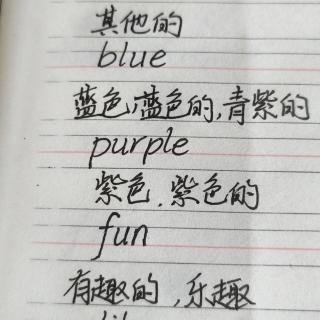 其他的
blue
蓝色,蓝色的,青紫的
purple
紫色,紫色的
fun
有趣的,乐趣